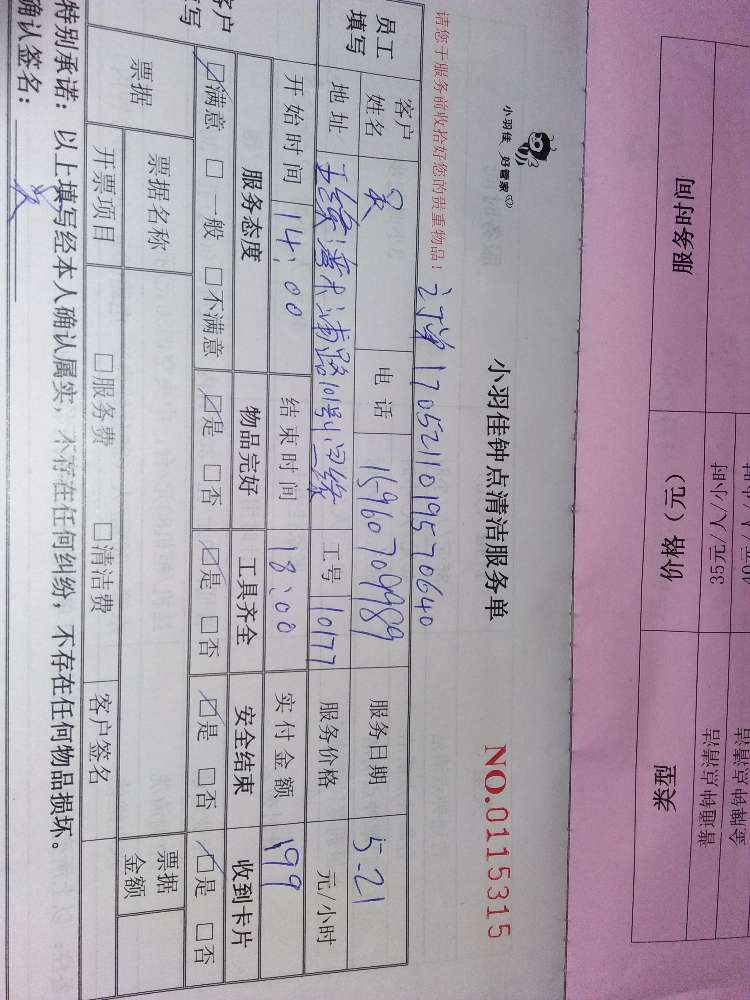 服务时间 价格（元） 类型
35元/人/小时 普通钟点清洁
金牌钟点清洁
小羽佳 好管家
小羽佳钟点清洁服务单 NO.0115315
请您于服务前收拾好您的贵重物品！ 订单1705211019570640
员工填写 客户姓名 吴 电话 15960709989 服务日期 5-21
地址 工号 10177 服务价格 元/小时
开始时间 14:00 结束时间 18:00 实付金额 199
客户填写 服务态度 物品完好 工具齐全 安全结束 收到卡片
☑满意 □一般 □不满意 ☑是 □否 ☑是 □否 ☑是 □否 ☑是 □否
票据 票据名称 票据金额
开票项目 □服务费 □清洁费 客户签名
特别承诺：以上填写经本人确认属实，不存在任何纠纷，不存在任何物品损坏。
确认签名：